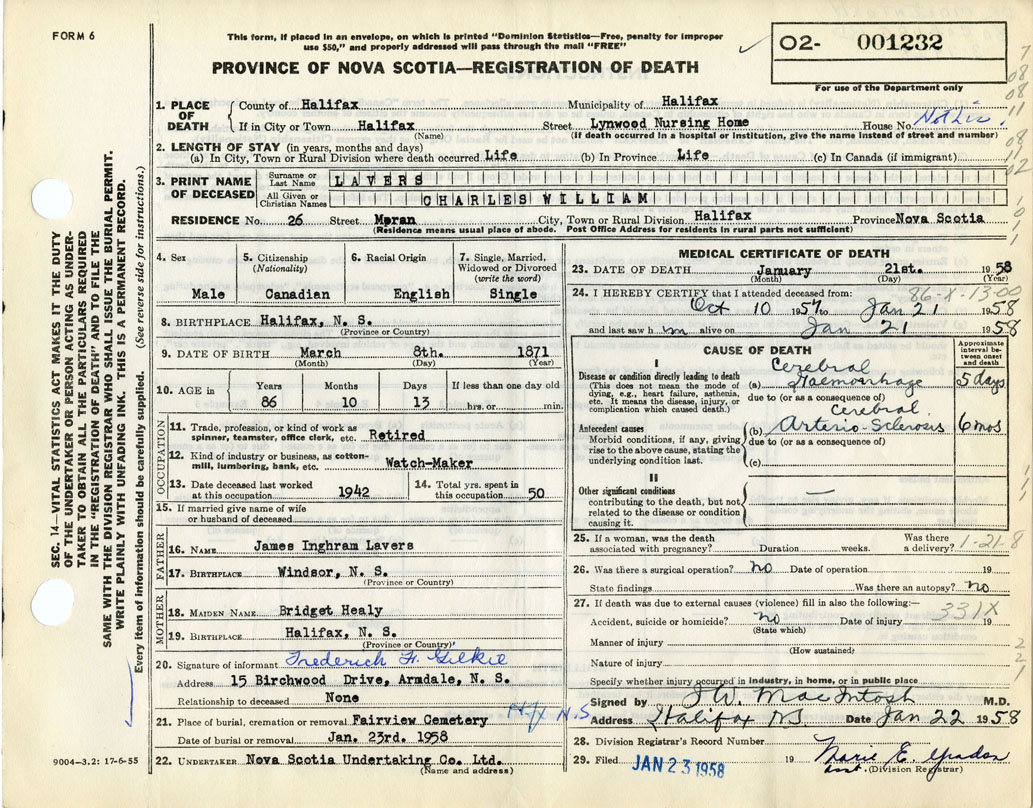 FORM 6
This form, if placed in an envelope, on which is printed "Dominion Statistics—Free, penalty for improper
use $50," and properly addressed will pass through the mail "FREE"
PROVINCE OF NOVA SCOTIA—REGISTRATION OF DEATH
02- 001232
For use of the Department only
SEC. 14—VITAL STATISTICS ACT MAKES IT THE DUTY
OF THE UNDERTAKER OR PERSON ACTING AS UNDER-
TAKER TO OBTAIN ALL THE PARTICULARS REQUIRED
IN THE "REGISTRATION OF DEATH" AND TO FILE THE
SAME WITH THE DIVISION REGISTRAR WHO SHALL ISSUE THE BURIAL PERMIT.
WRITE PLAINLY WITH UNFADING INK. THIS IS A PERMANENT RECORD.
Every item of information should be carefully supplied. (See reverse side for instructions.)
1. PLACE OF DEATH
County of Halifax Municipality of Halifax
If in City or Town Halifax Street Lynwood Nursing Home House No. Not Liv.
(Name) (If death occurred in a hospital or institution, give the name instead of street and number)
2. LENGTH OF STAY (in years, months and days)
(a) In City, Town or Rural Division where death occurred Life (b) In Province Life (c) In Canada (if immigrant)
3. PRINT NAME OF DECEASED
Surname or Last Name LAVERS
All Given or Christian Names CHARLES WILLIAM
RESIDENCE No. 26 Street Moran City, Town or Rural Division Halifax Province Nova Scotia
(Residence means usual place of abode. Post Office Address for residents in rural parts not sufficient)
4. Sex
Male
5. Citizenship
(Nationality)
Canadian
6. Racial Origin
English
7. Single, Married,
Widowed or Divorced
(write the word)
Single
8. BIRTHPLACE Halifax, N. S.
(Province or Country)
9. DATE OF BIRTH March 8th. 1871
(Month) (Day) (Year)
10. AGE in
Years Months Days If less than one day old
86 10 13 hrs. or min.
OCCUPATION
11. Trade, profession, or kind of work as
spinner, teamster, office clerk, etc. Retired
12. Kind of industry or business, as cotton-
mill, lumbering, bank, etc. Watch-Maker
13. Date deceased last worked
at this occupation 1942
14. Total yrs. spent in
this occupation 50
15. If married give name of wife
or husband of deceased
FATHER
16. NAME James Inghram Lavers
17. BIRTHPLACE Windsor, N. S.
(Province or Country)
MOTHER
18. MAIDEN NAME Bridget Healy
19. BIRTHPLACE Halifax, N. S.
(Province or Country)
20. Signature of informant Frederich F. Gilkie
Address 15 Birchwood Drive, Armdale, N. S.
Relationship to deceased None
21. Place of burial, cremation or removal Fairview Cemetery Hfx N.S
Date of burial or removal Jan. 23rd. 1958
22. UNDERTAKER Nova Scotia Undertaking Co. Ltd.
(Name and address)
9004—3.2: 17-6-55
MEDICAL CERTIFICATE OF DEATH
23. DATE OF DEATH January 21st. 1958
(Month) (Day)
24. I HEREBY CERTIFY that I attended deceased from:
86-X-13-00
Oct 10 1957 to Jan 21 1958
and last saw him alive on Jan 21 1958
CAUSE OF DEATH
Approximate
interval be-
tween onset
and death
I
Disease or condition directly leading to death
(This does not mean the mode of
dying, e.g., heart failure, asthenia,
etc. It means the disease, injury, or
complication which caused death.)
(a) Cerebral Haemorrhage 5 days
due to (or as a consequence of)
Antecedent causes
Morbid conditions, if any, giving
rise to the above cause, stating the
underlying condition last.
(b) Cerebral Arterio-Sclerosis 6 mos
due to (or as a consequence of)
(c)
II
Other significant conditions
contributing to the death, but not
related to the disease or condition
causing it.
—
25. If a woman, was the death
associated with pregnancy? Duration weeks.
Was there
a delivery?
1-21-8
26. Was there a surgical operation? no Date of operation 19
State findings Was there an autopsy? no
27. If death was due to external causes (violence) fill in also the following:—
331X
Accident, suicide or homicide? no Date of injury 19
(State which)
Manner of injury
(How sustained)
Nature of injury
Specify whether injury occurred in industry, in home, or in public place
Signed by J W. MacIntosh M.D.
Address Halifax NS Date Jan 22 1958
28. Division Registrar's Record Number
29. Filed JAN 23 1958 19 Marie E.
(Division Registrar)